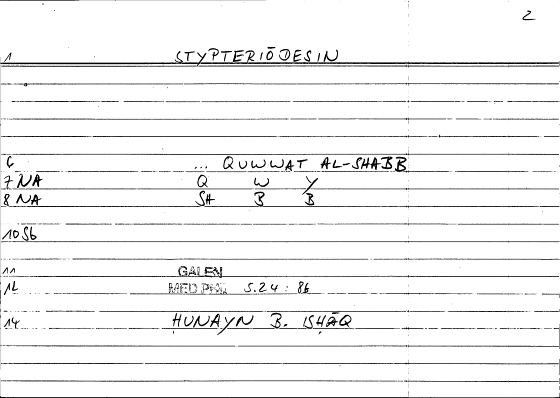 2
1 STYPTERIŌDESIN
6 ... QUWWAT AL-SHABB
7 NA Q W Y
8 NA SH B B
10 Sb
11 GALEN
12 MED PHIL 5.24 : 86
14 ḤUNAYN B. ISḤĀQ